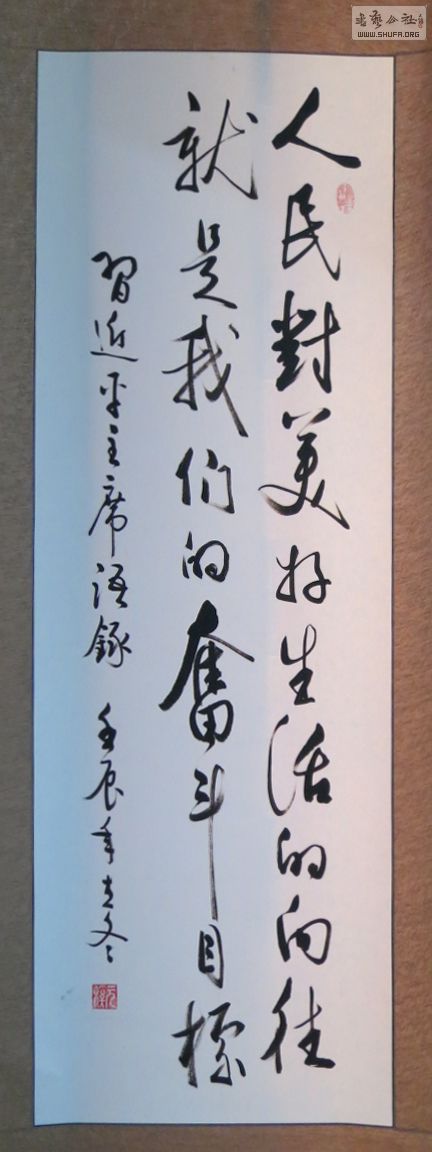 人民對美好生活的向往
就是我们的奮斗目標
習近平主席语錄 壬辰年立冬
書藝公社
WWW.SHUFA.ORG